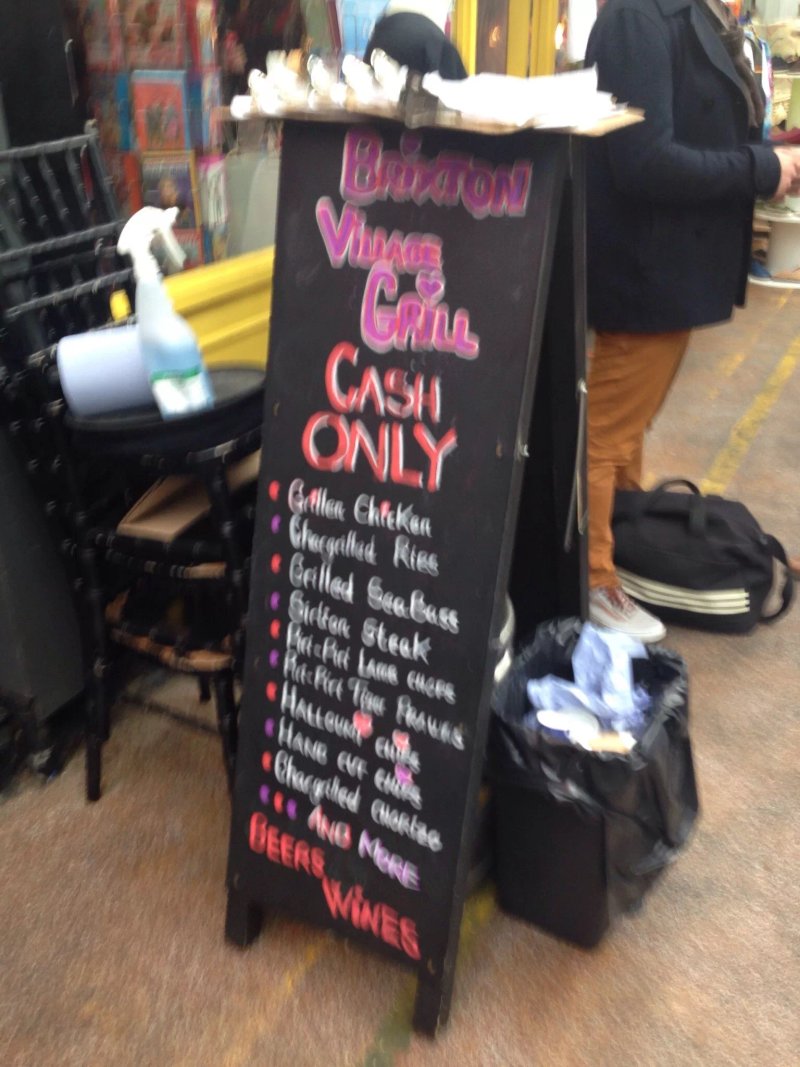 BRIXTON
VILLAGE
GRILL
CASH
ONLY
Grilled Chicken
Chargrilled Ribs
Grilled Sea Bass
Sirloin Steak
Piri-Piri Lamb chops
Piri-Piri Tiger Prawns
HALLOUMI chips
HAND CUT CHIPS
Chargrilled chorizo
AND MORE
BEERS
WINES